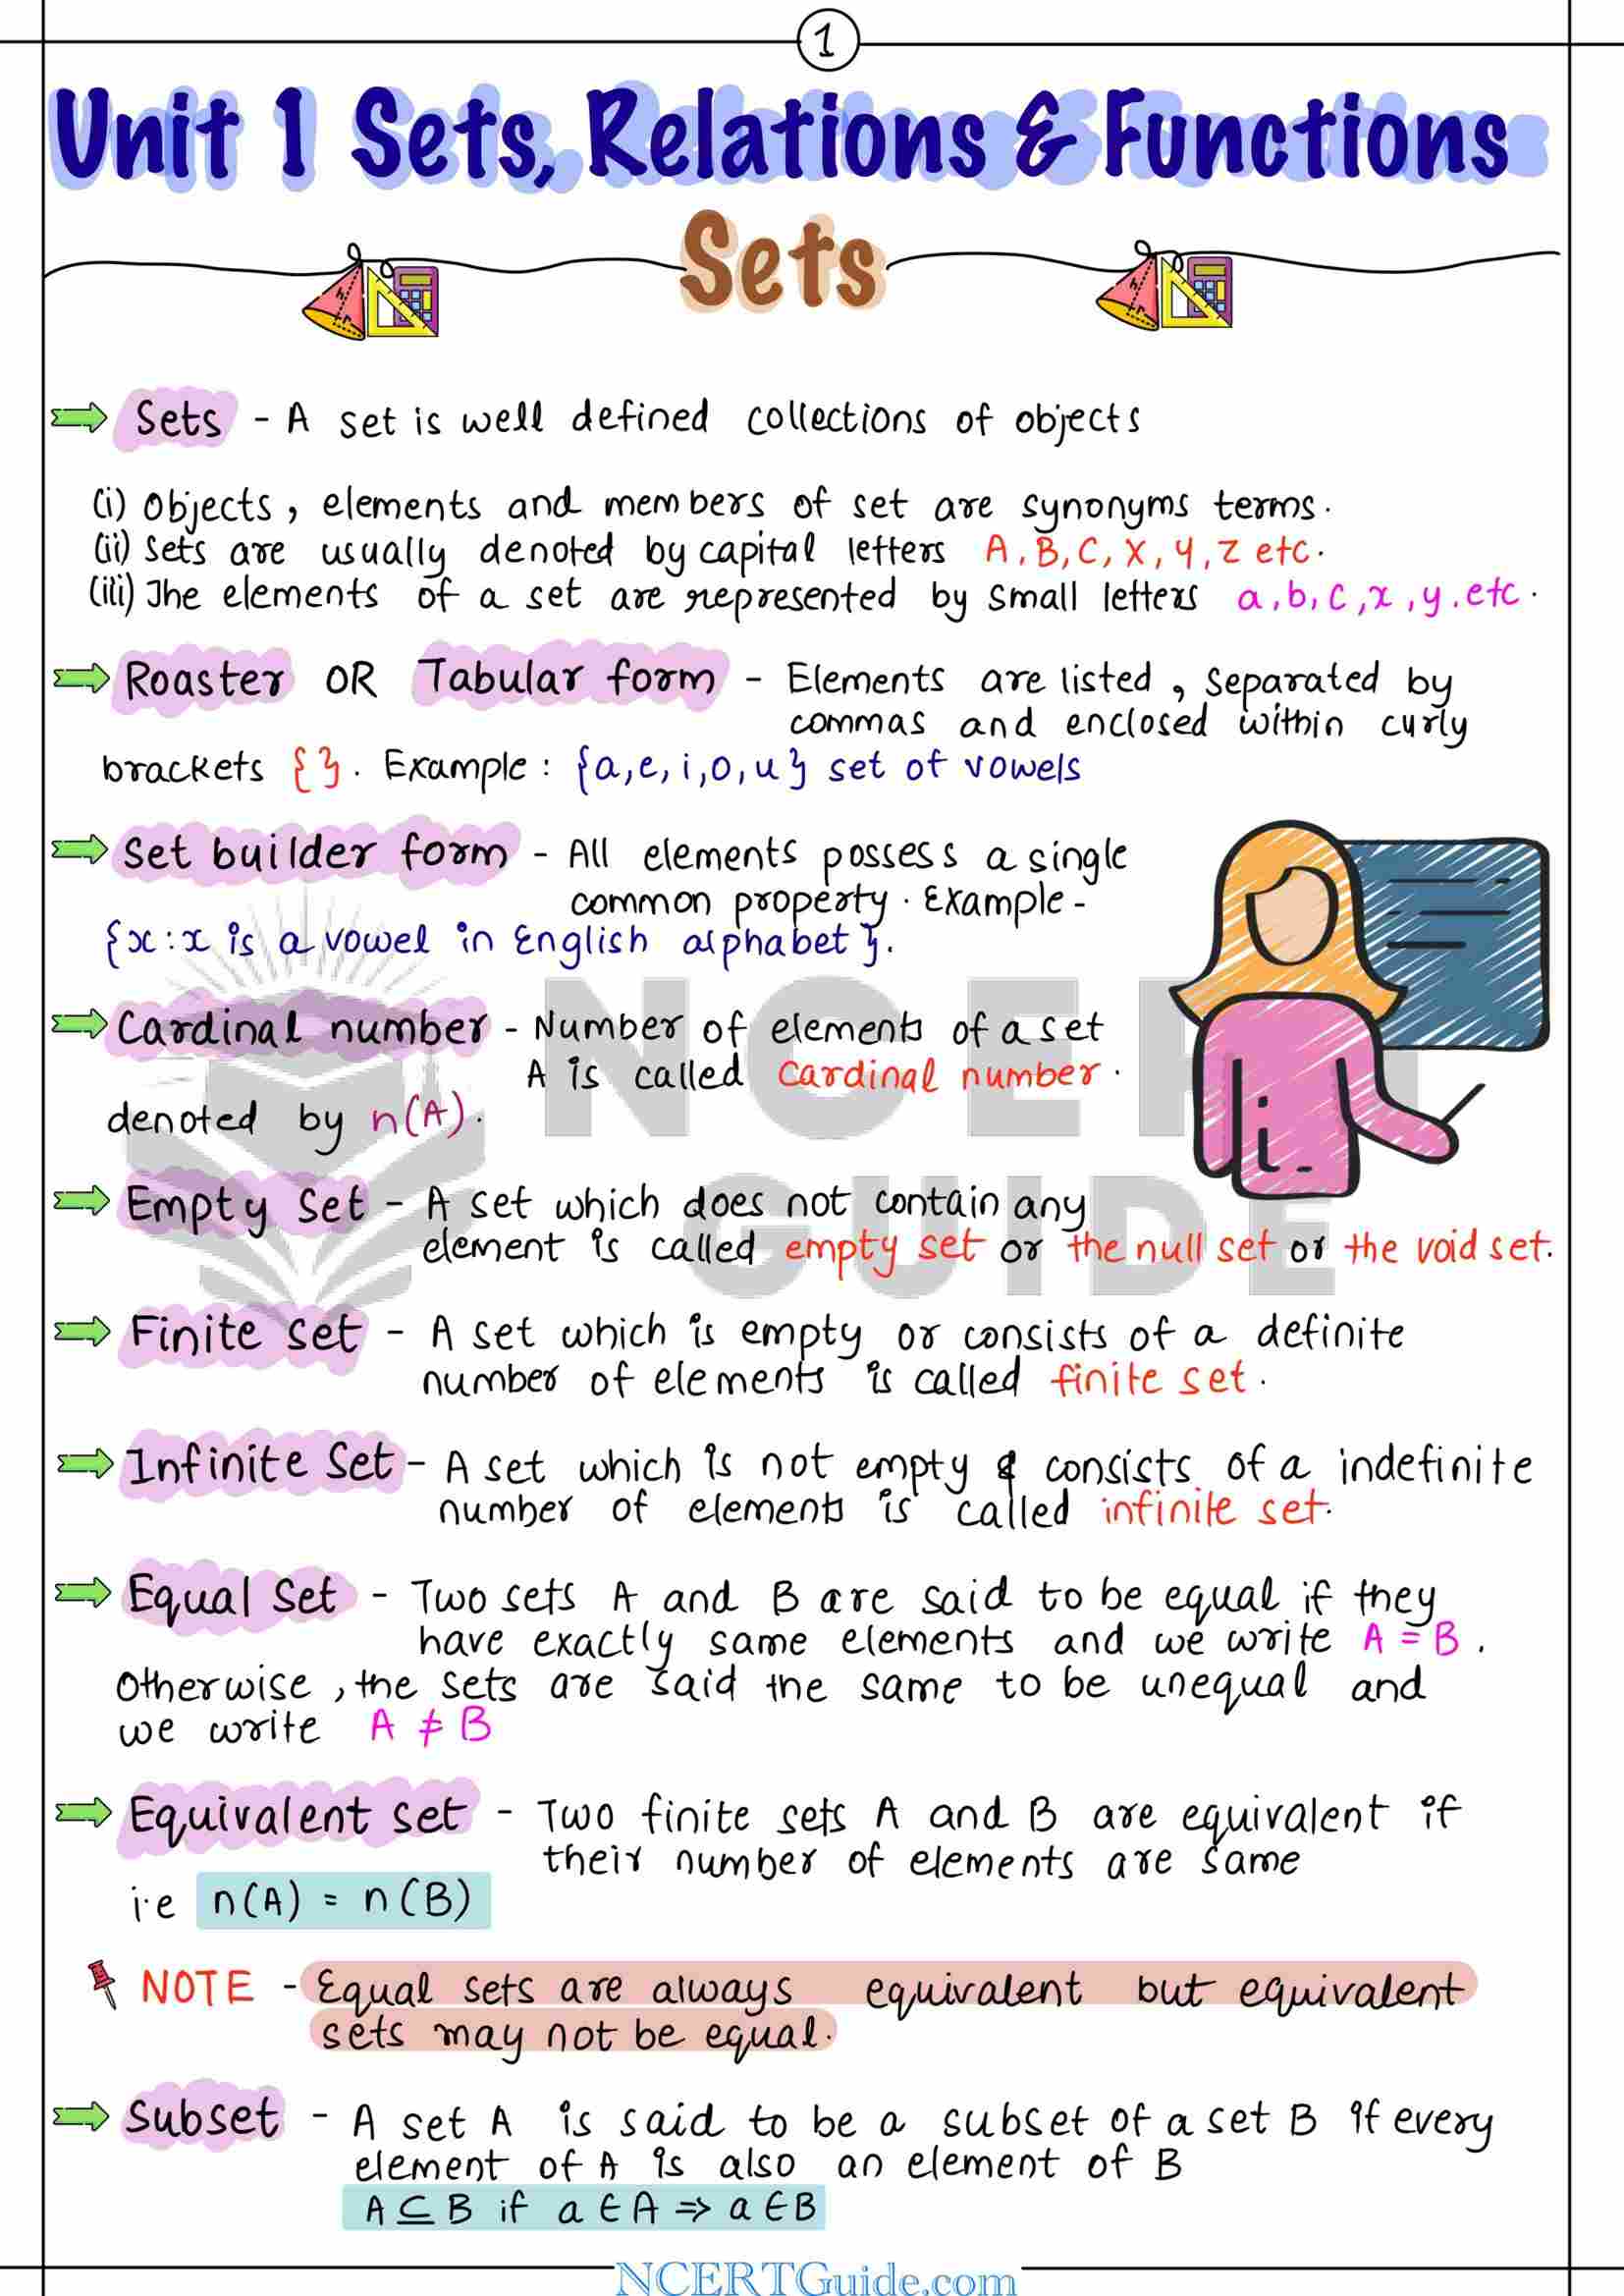 1
Unit 1 Sets, Relations & Functions
Sets
Sets - A set is well defined collections of objects
(i) Objects, elements and members of set are synonyms terms.
(ii) Sets are usually denoted by capital letters A, B, C, X, Y, Z etc.
(iii) The elements of a set are represented by small letters a, b, c, x, y. etc.
Roaster OR Tabular form - Elements are listed, separated by
commas and enclosed within curly
brackets { }. Example: {a, e, i, o, u} set of vowels
Set builder form - All elements possess a single
common property. Example -
{x : x is a vowel in English alphabet}.
Cardinal number - Number of elements of a set
A is called cardinal number.
denoted by n(A).
Empty set - A set which does not contain any
element is called empty set or the null set or the void set.
Finite set - A set which is empty or consists of a definite
number of elements is called finite set.
Infinite Set - A set which is not empty & consists of a indefinite
number of elements is called infinite set.
Equal Set - Two sets A and B are said to be equal if they
have exactly same elements and we write A = B.
Otherwise, the sets are said the same to be unequal and
we write A ≠ B
Equivalent set - Two finite sets A and B are equivalent if
their number of elements are same
i.e n(A) = n(B)
NOTE - Equal sets are always equivalent but equivalent
sets may not be equal.
Subset - A set A is said to be a subset of a set B if every
element of A is also an element of B
A ⊆ B if a ∈ A ⇒ a ∈ B
NCERT
GUIDE
NCERTGuide.com